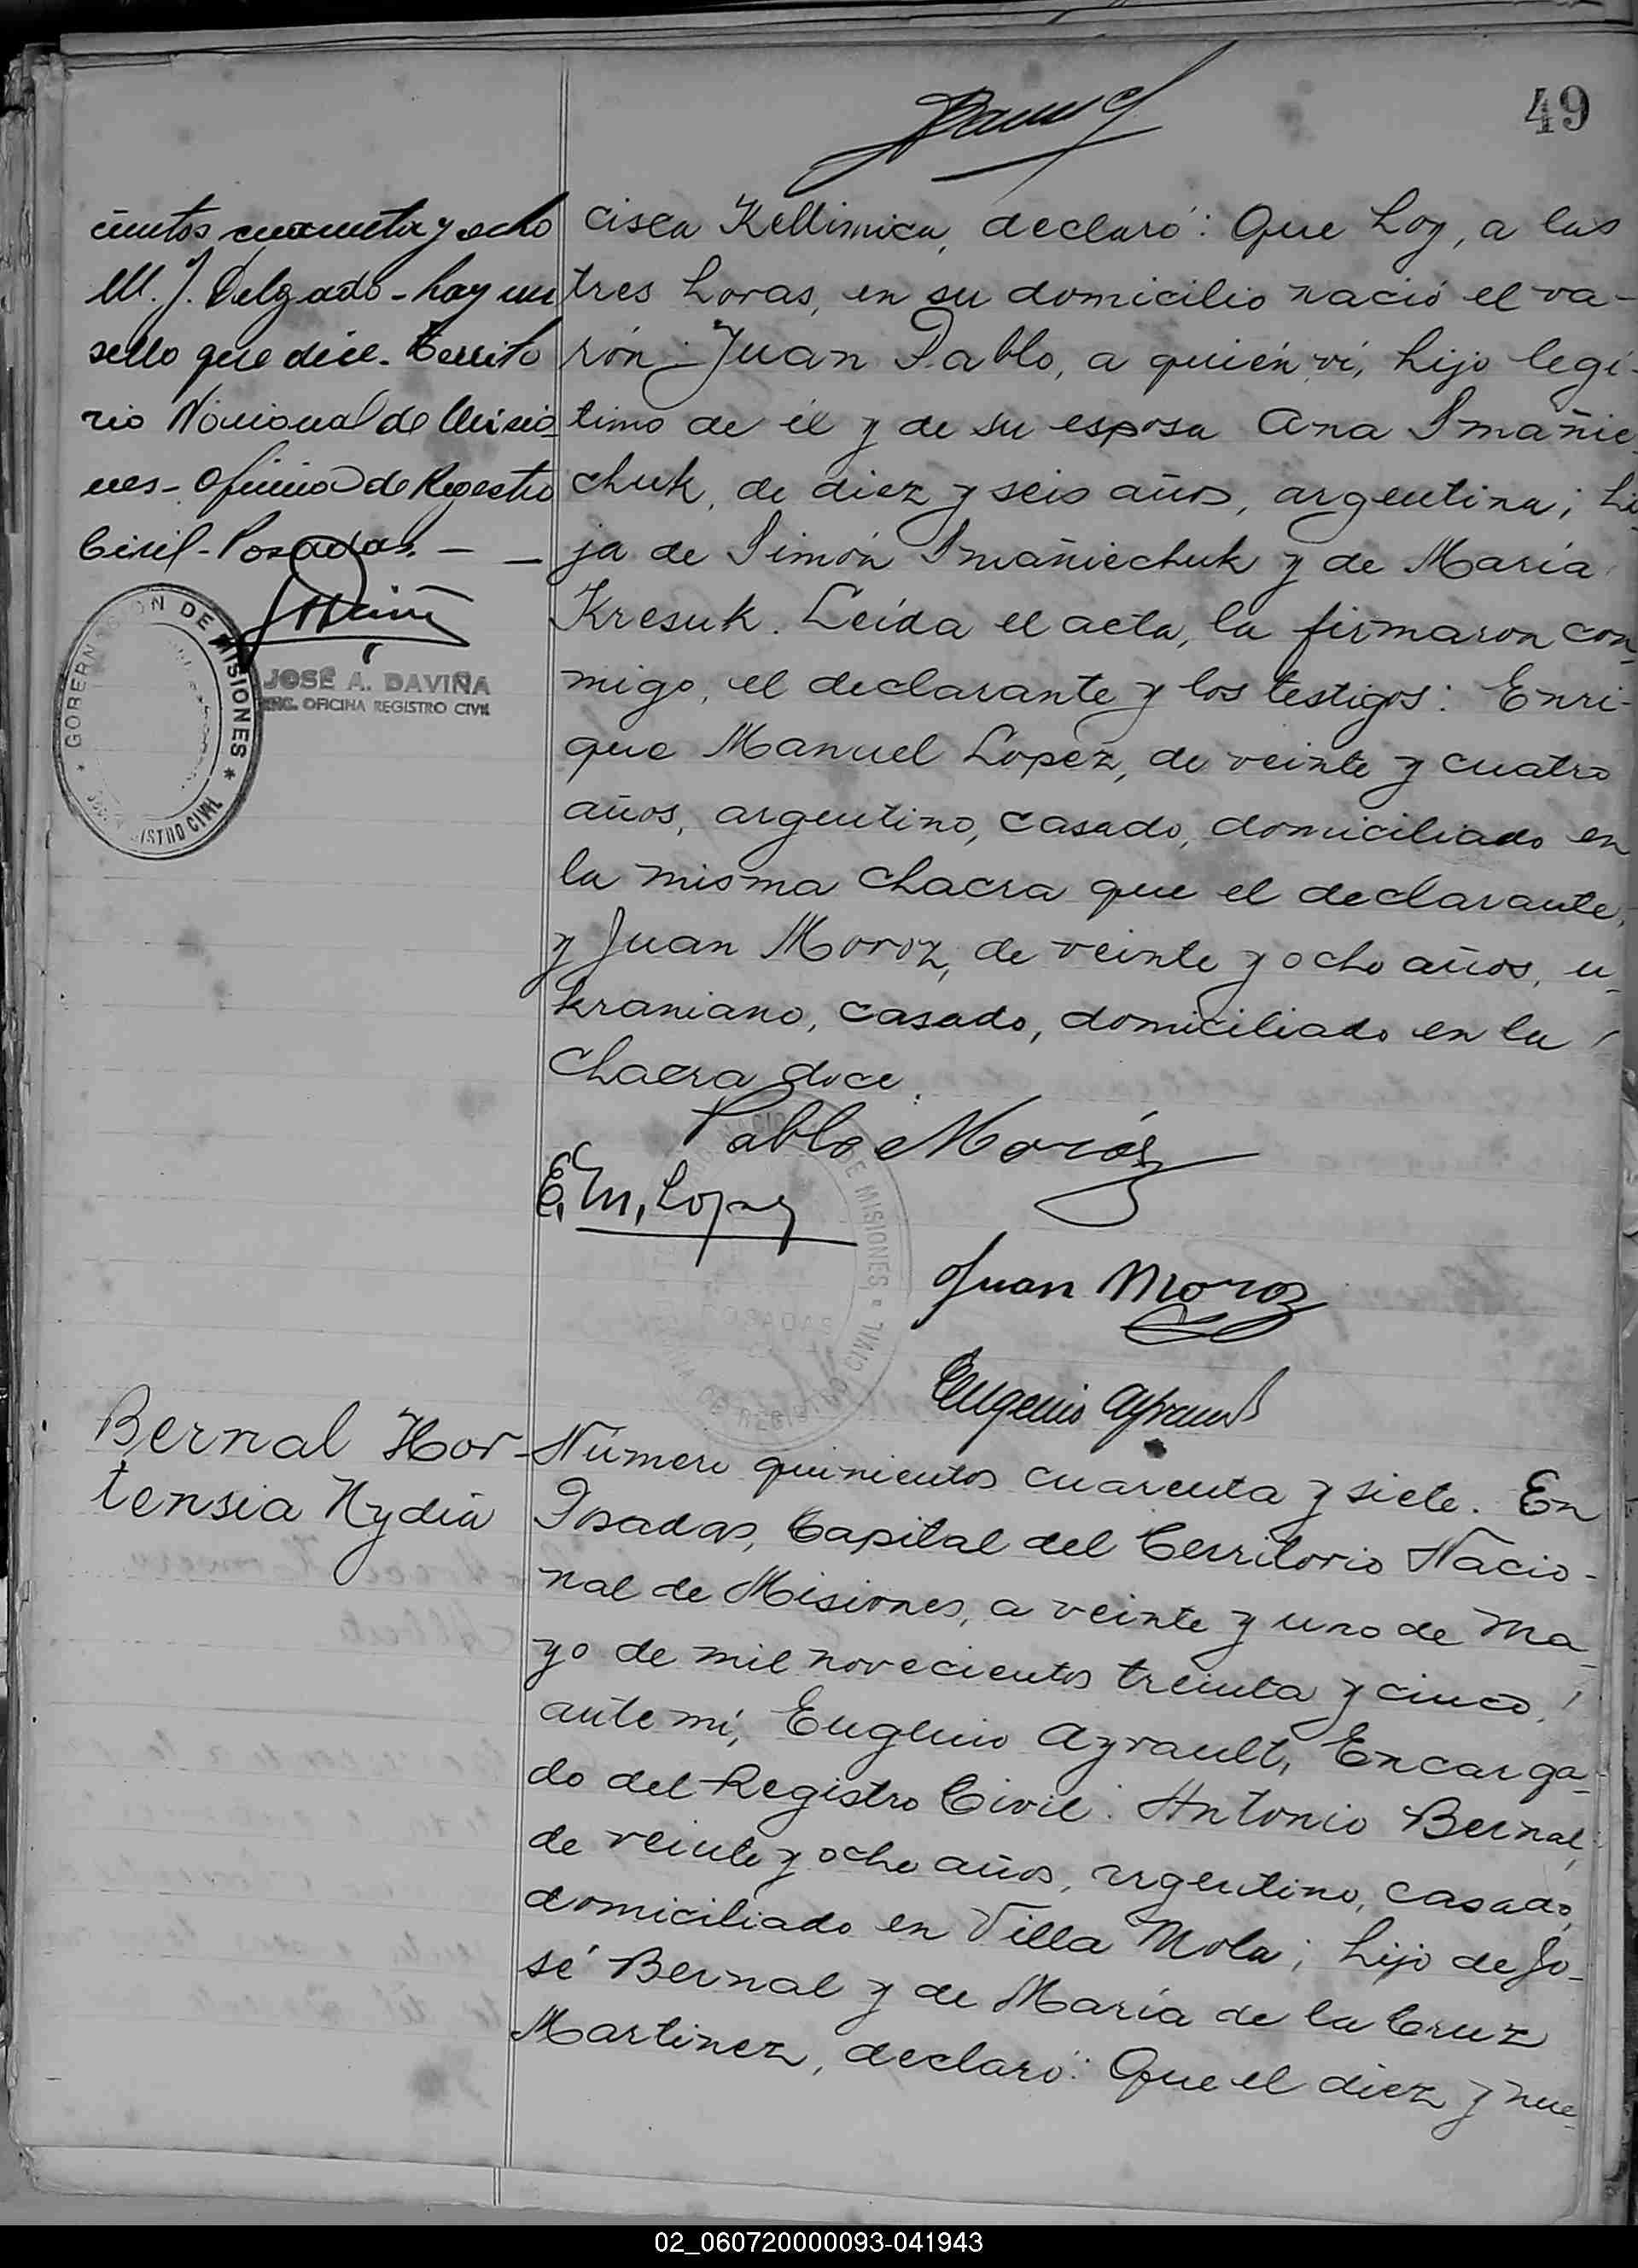 49
cientos cuarenta y ocho
M. J. Delgado - hay un
sello que dice - Territo
rio Nacional de Misio-
nes - Oficina de Registro
Civil - Posadas. -
GOBERNACION DE MISIONES
REGISTRO CIVIL
JOSÉ A. DAVIÑA
ENC. OFICINA REGISTRO CIVIL
cisca Kellimica, declaró: Que hoy, a las
tres horas, en su domicilio nació el va-
rón: Juan Pablo, a quién ví, hijo legí-
timo de él y de su esposa Ana Smañie-
chuk, de diez y seis años, argentina; hi-
ja de Simón Smañiechuk y de María
Kresuk. Leída el acta, la firmaron con-
migo, el declarante y los testigos: Enri-
que Manuel Lopez, de veinte y cuatro
años, argentino, casado, domiciliado en
la misma chacra que el declarante,
y Juan Moroz, de veinte y ocho años, u-
kraniano, casado, domiciliado en la
chacra doce.
Pablo Moróz
E. M. Lopez
Juan Moroz
Eugenio Ayrault
DE MISIONES
POSADAS
OFICINA DE REGISTRO CIVIL
Bernal Hor-
tensia Nydia
Número quinientos cuarenta y siete. En
Posadas, Capital del Territorio Nacio-
nal de Misiones, a veinte y uno de Ma-
yo de mil novecientos treinta y cinco,
ante mí, Eugenio Ayrault, Encarga-
do del Registro Civil: Antonio Bernal,
de veinte y ocho años, argentino, casado,
domiciliado en Villa Mola; hijo de Jo-
sé Bernal y de María de la Cruz
Martinez, declaró: Que el diez y nue-
02_060720000093-041943